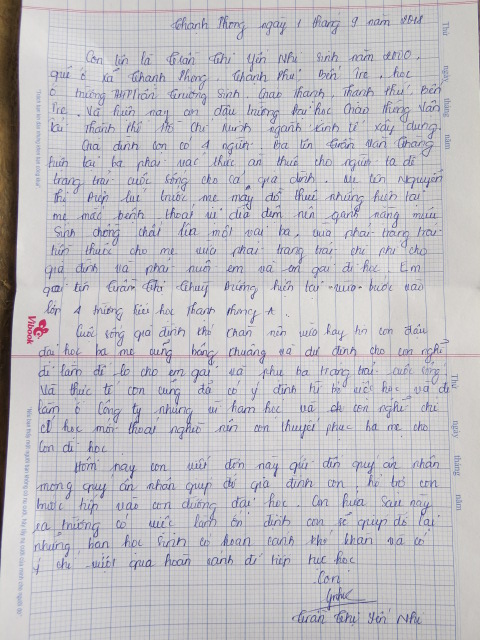 Thạnh Phong ngày 1 tháng 9 năm 2018
Con tên là Trần Thị Yến Nhi sinh năm 2000,
quê ở xã Thạnh Phong, Thạnh Phú, Bến Tre, học
ở trường THPT Trần Trường Sinh, Giao Thạnh, Thạnh Phú, Bến
Tre. Và hiện nay con đậu trường Đại học Giao thông Vận
tải Thành Phố Hồ Chí Minh ngành kinh tế xây dựng.
Gia đình con có 4 người. Ba tên Trần Văn
hiện tại ba phải vác thức ăn thuê cho người ta để
trang trải cuộc sống cho cả gia đình. Mẹ tên Nguyễn
Thị lúc trước mẹ may đồ thuê nhưng hiện tại
mẹ mắc bệnh thoát vị đĩa đệm nên gánh nặng mưu
sinh chồng chất lên một vai ba, vừa phải trang trải
tiền thuốc cho mẹ vừa phải trang trải chi phí cho
gia đình và phải nuôi em và con gái đi học. Em
gái tên Trần Thị Thùy Dương hiện tại vừa bước vào
lớp 4 trường tiểu học Thạnh Phong A.
Cuộc sống gia đình khó khăn nên vừa hay tin con đậu
đại học ba mẹ cũng bàng hoàng và dự định cho con nghỉ
đi làm để lo cho em gái và phụ ba trang trải cuộc sống.
Và thực tế con cũng đã có ý định từ bỏ việc học và đi
làm ở công ty nhưng vì ham học và con nghĩ chỉ
có học mới thoát nghèo nên con thuyết phục ba mẹ cho
con đi học.
Hôm nay con viết đơn này gửi đến quý ân nhân
mong quý ân nhân giúp đỡ gia đình con, hỗ trợ con
bước tiếp vào con đường đại học. Con hứa sau này
ra trường có việc làm ổn định con sẽ giúp đỡ lại
những bạn học sinh có hoàn cảnh khó khăn và có
ý chí vượt qua hoàn cảnh để tiếp tục học
Con
Trần Thị Yến Nhi
Vibook
Thứ
ngày
tháng
năm
Thứ
ngày
tháng
năm